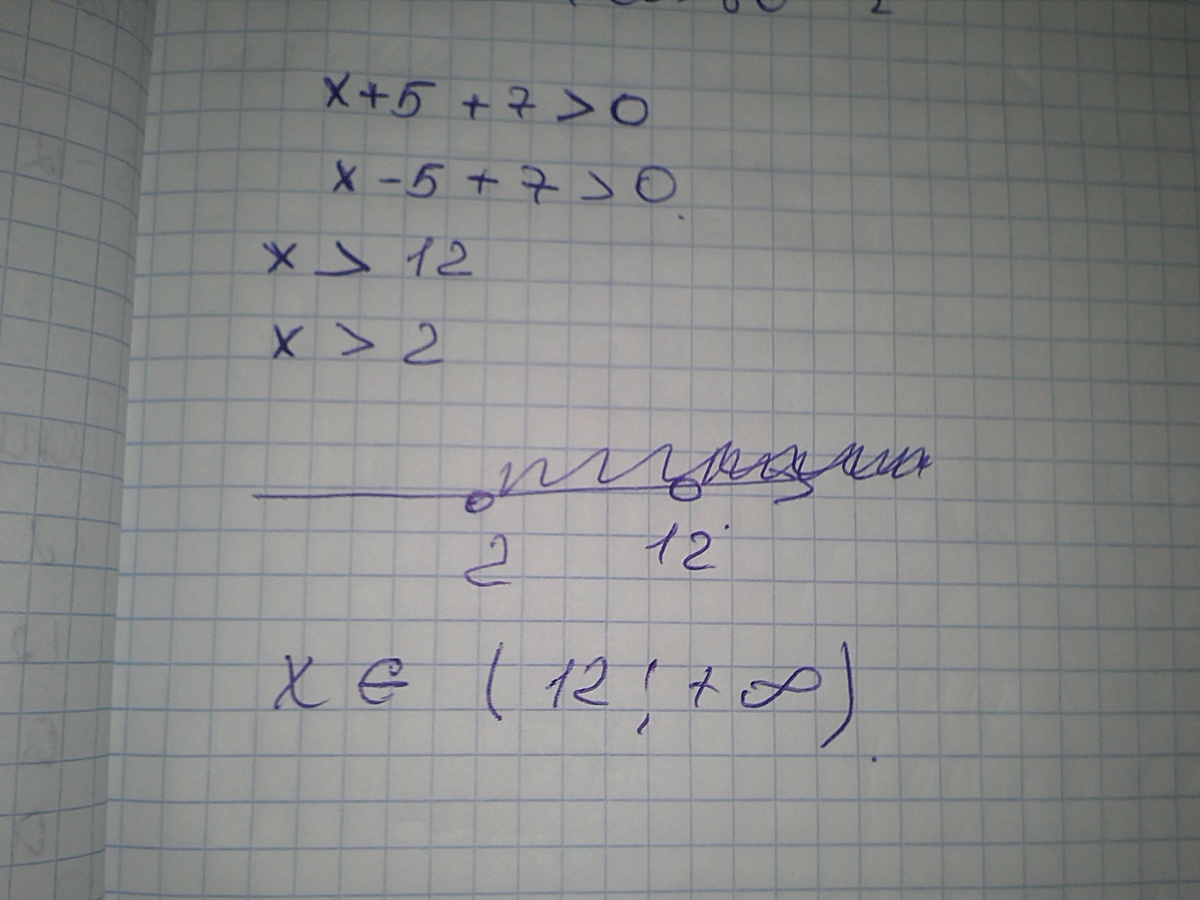 x+5 + 7 > 0
x - 5 + 7 > 0.
x > 12
x > 2
2 12
x ∈ (12; + ∞).